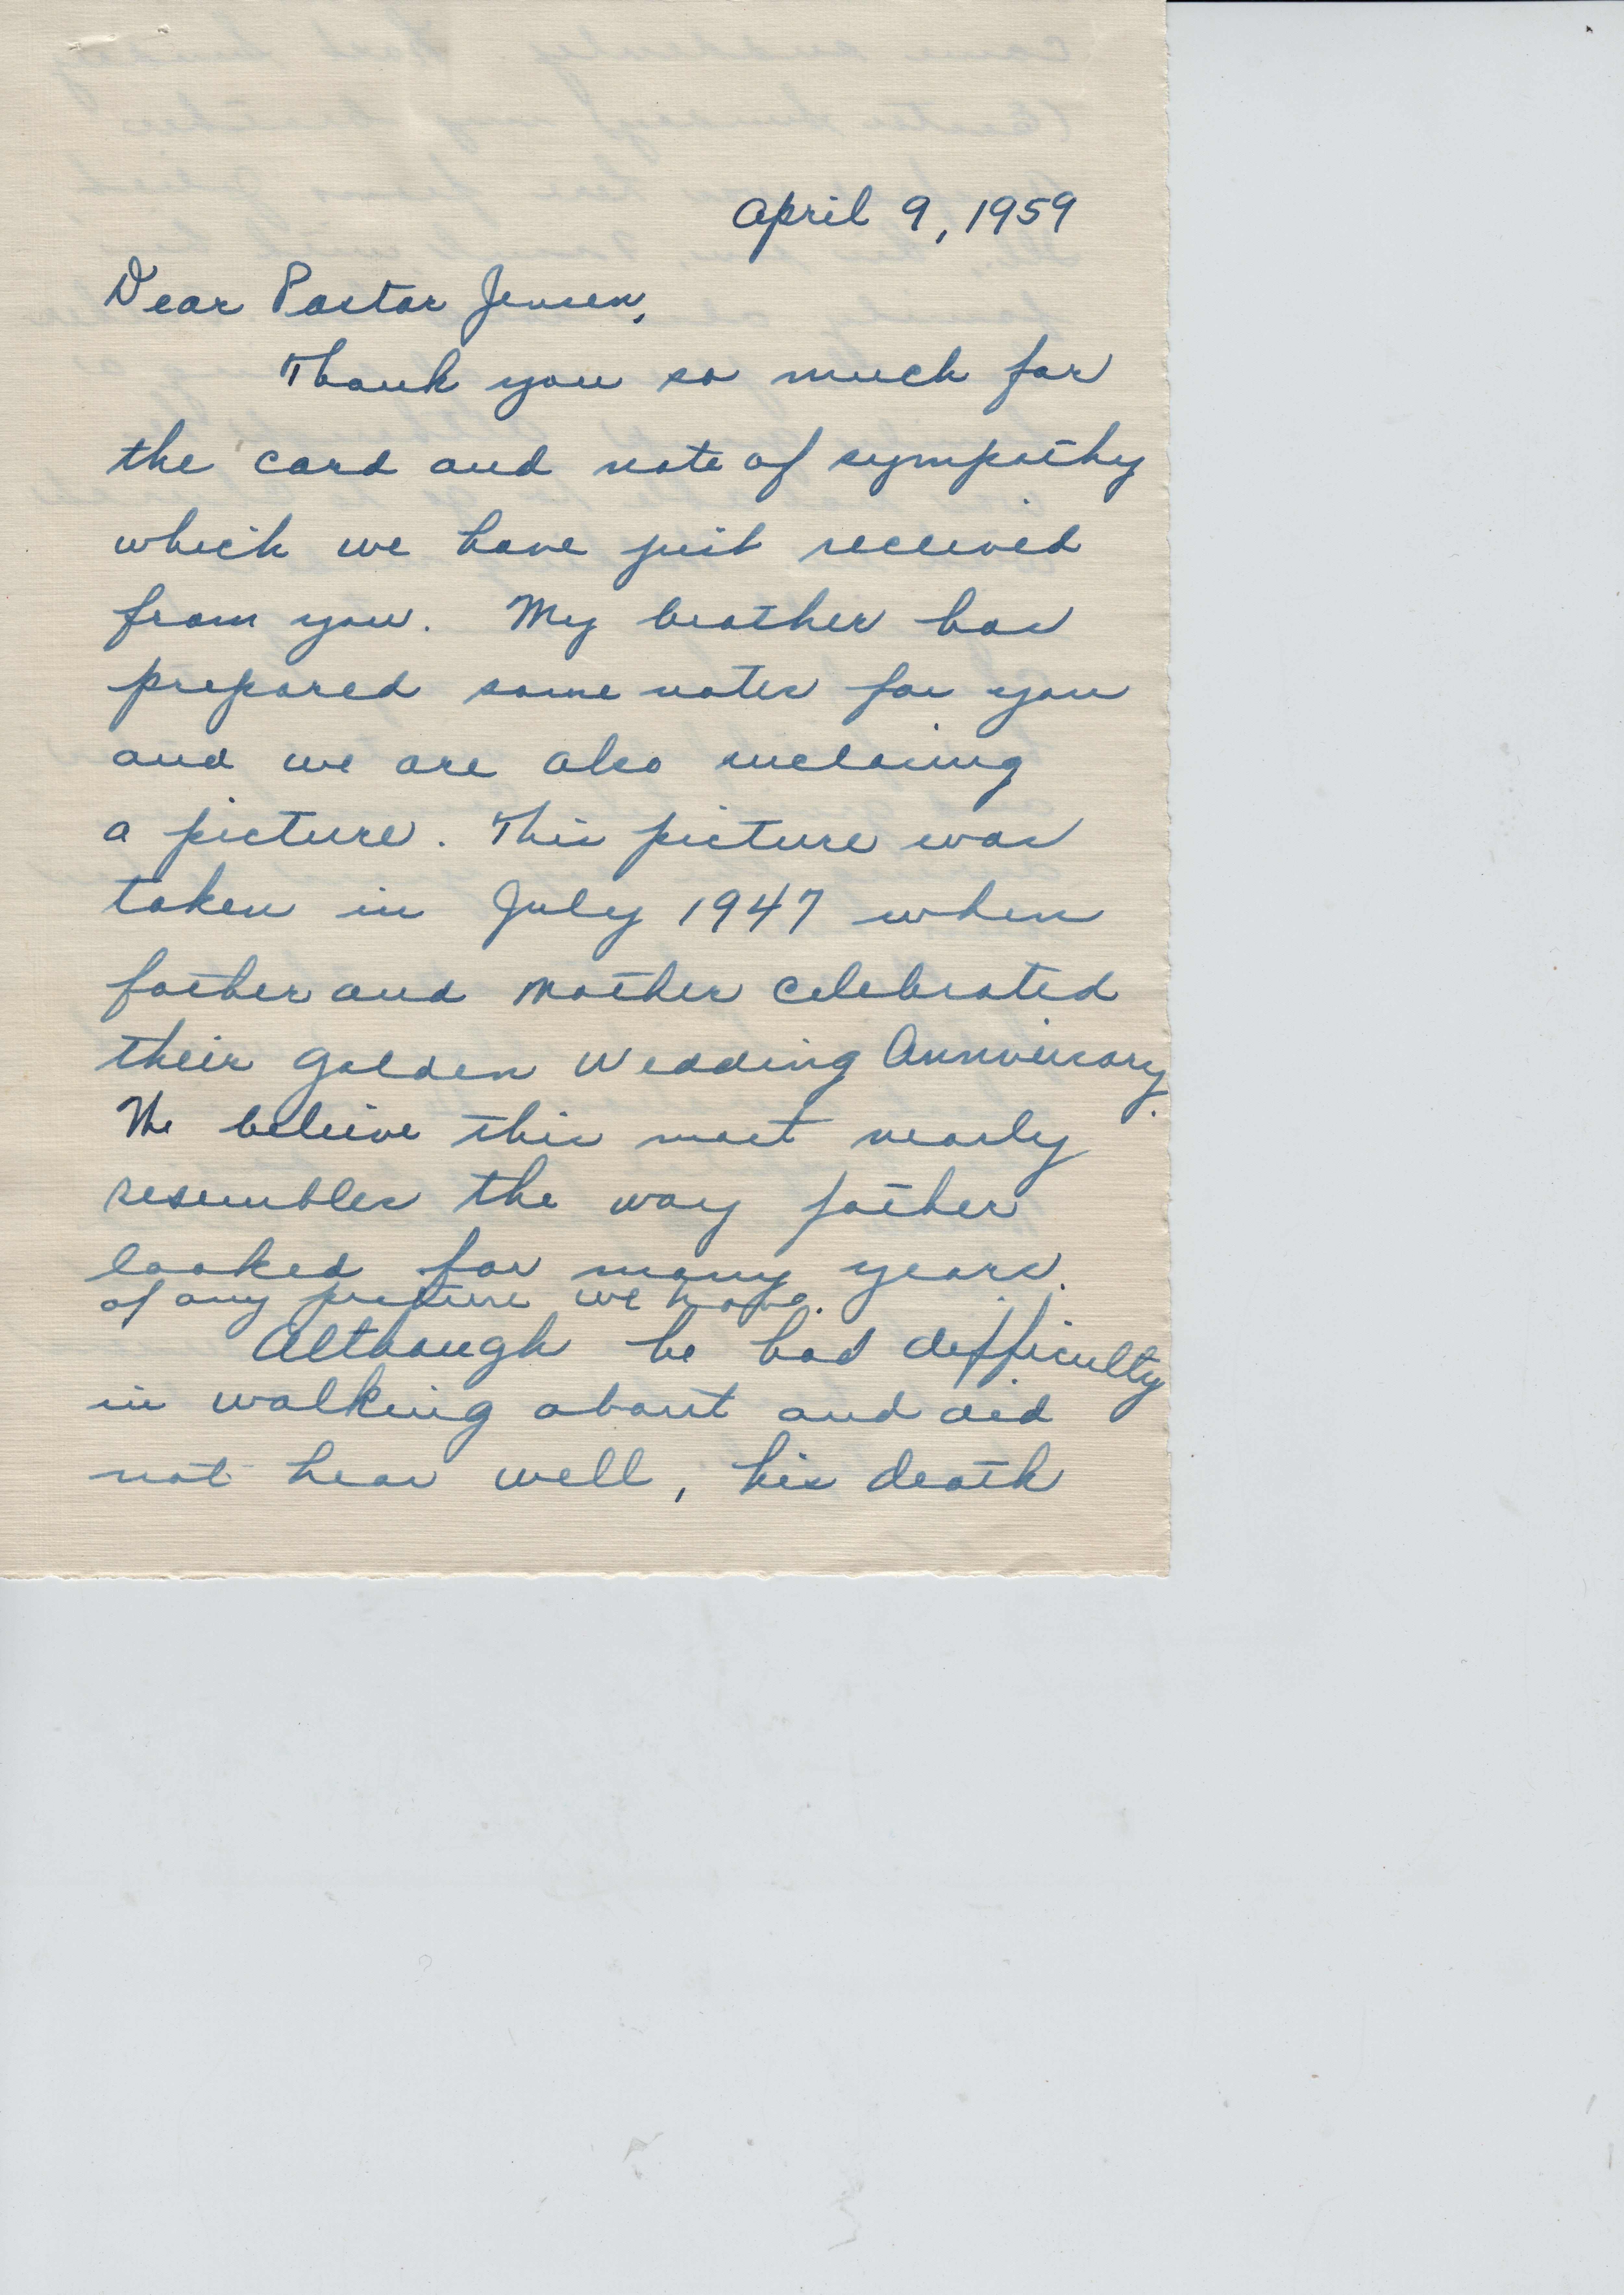 April 9, 1959
Dear Pastor Jensen,
Thank you so much for
the card and note of sympathy
which we have just received
from you. My brother has
prepared some notes for you
and we are also inclosing
a picture. This picture was
taken in July 1947 when
father and mother celebrated
their Golden Wedding Anniversary.
We believe this most nearly
resembles the way father
looked for many years.
of any picture we have.
Although he had difficulty
in walking about and did
not hear well, his death